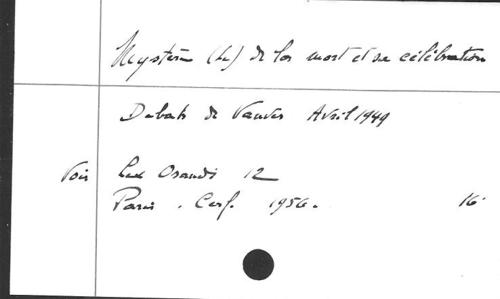 Mystère (Le) de la mort et sa célébration
Débats de Vanves Avril 1949
Voir Lex Orandi 12
Paris. Cerf. 1956. 16°